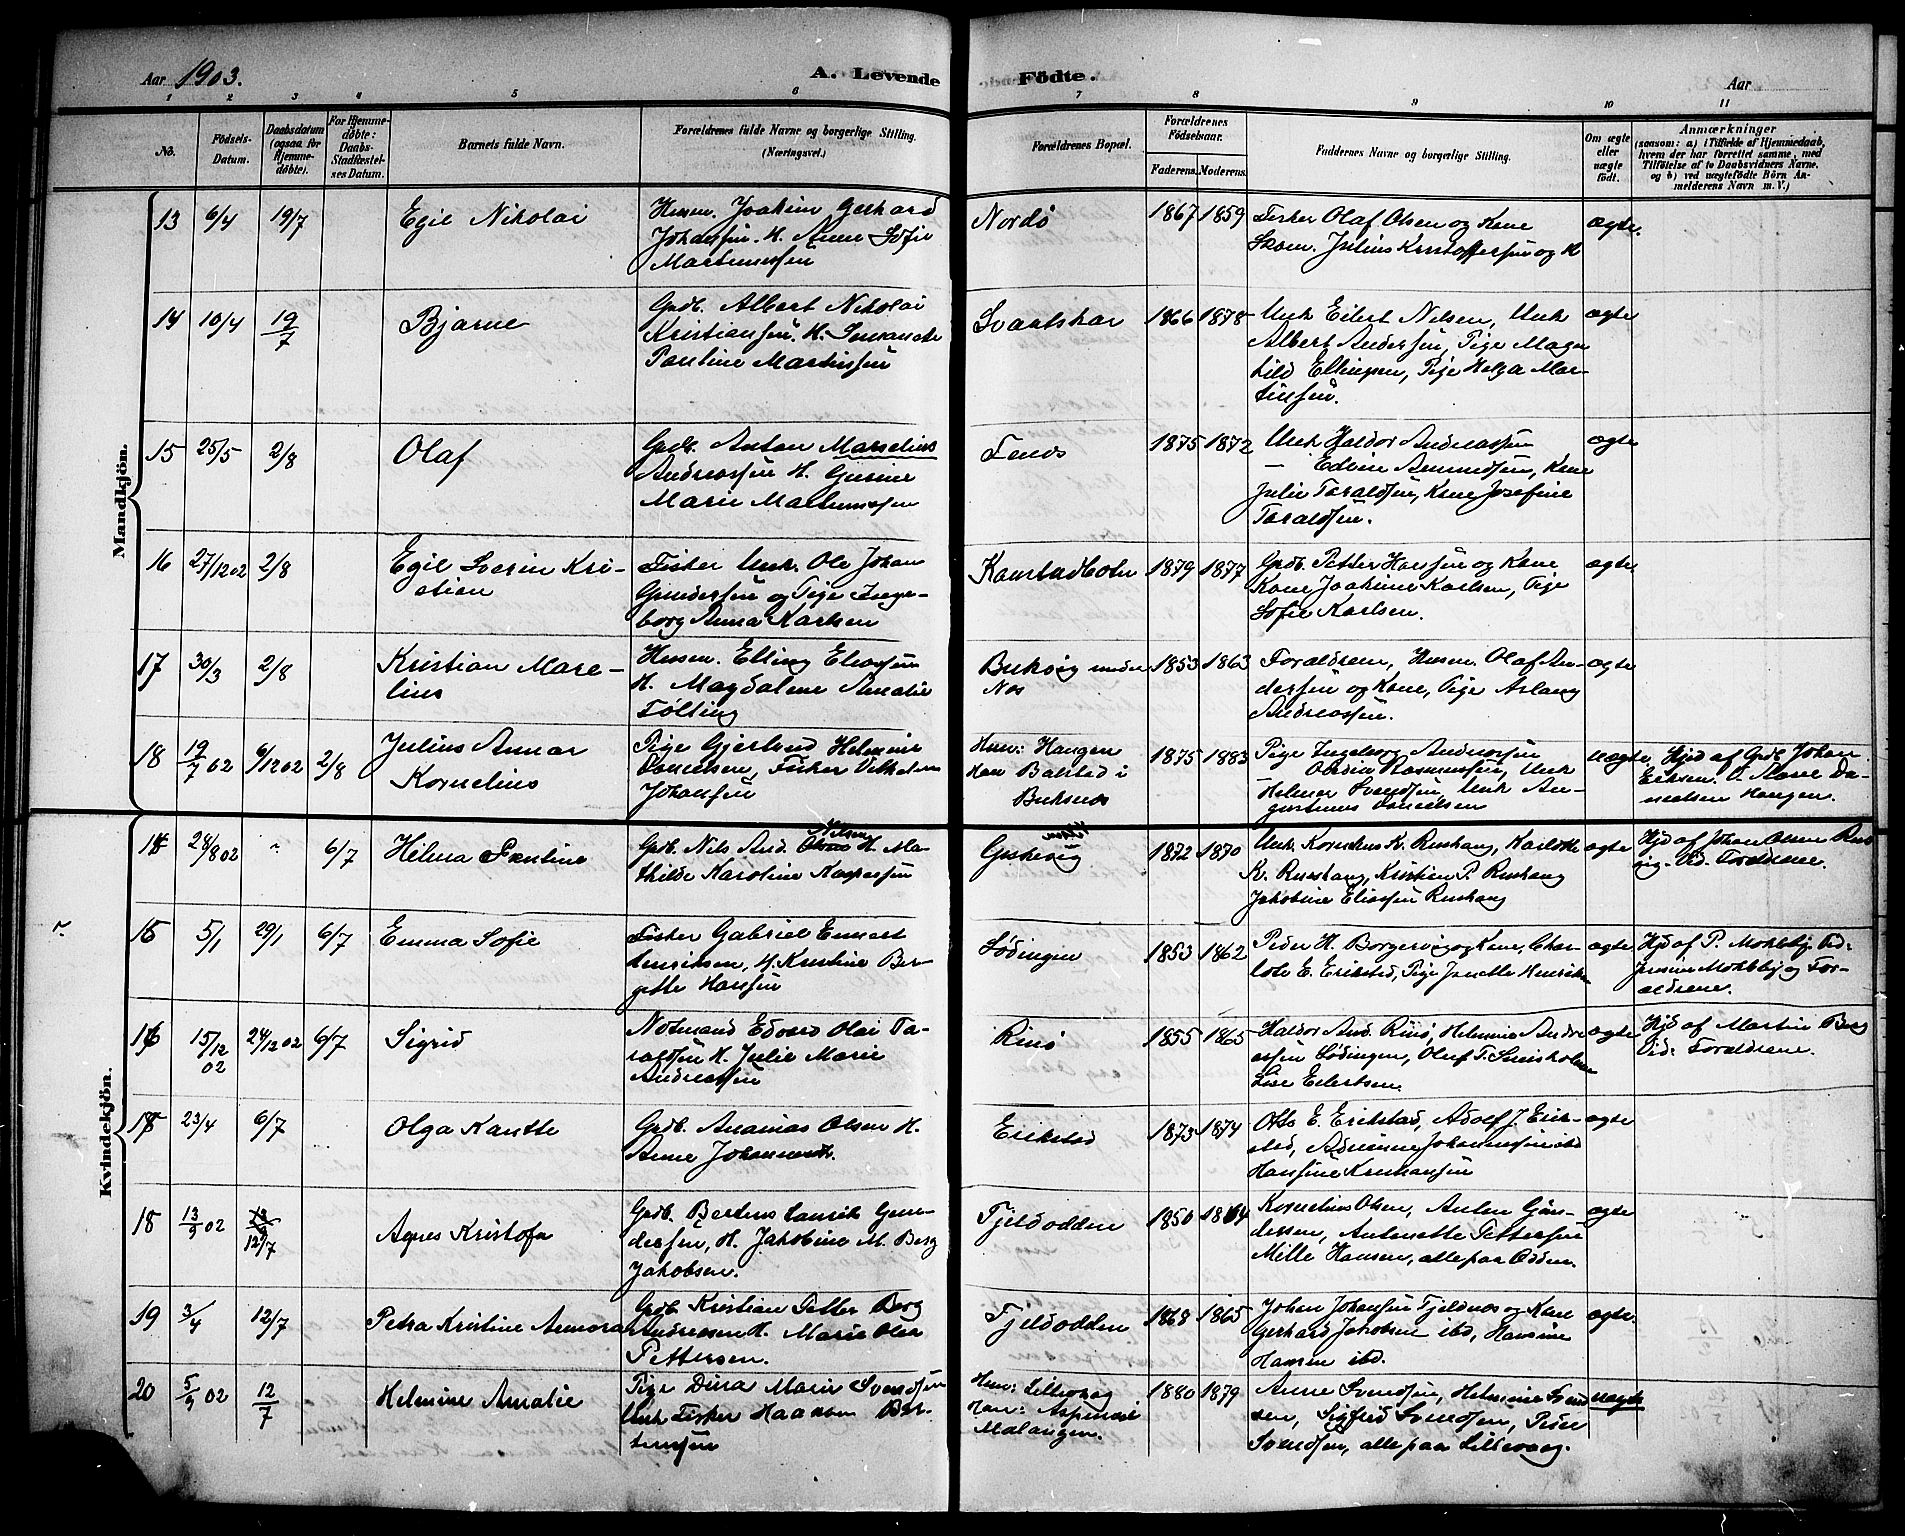 Aar 1903.
A. Levende Födte.
Aar
1 2 3 4 5 6 7 8 9 10 11
No.
Födsels-Datum.
Daabsdatum (ogsaa for Hjemmedöbte).
For Hjemmedöbte: Daabs-Stadfæstelses Datum.
Barnets fulde Navn.
Forældrenes fulde Navne og borgerlige Stilling. (Næringsvei.)
Forældrenes Bopæl.
Forældrenes Födselsaar.
Faderens. Moderens.
Faddernes Navne og borgerlige Stilling.
Om ægte eller uægte födt.
Anmærkninger
(saasom: a) i Tilfælde af Hjemmedaab, hvem der har forrettet samme, med Tilföielse af to Daabsvidners Navne. og b) ved uægtefödte Börn Anmelderens Navn m. V.)
Mandkjön.
13 6/4 19/7 Egil Nikolai
Husm. Joakim Gerhard
Johansen. H. Anne Sofie
Martinussen
Nordö 1867 1859
Fisker Olaf Olsen og Kone
Skom. Julius Kristoffersen og K
ægte.
14 10/4 19/7 Bjarne
Grdb. Albert Nikolai
Kristiansen. H.
Pauline Martinssen
Svaatskar 1866 1878
Unk Eilert Nilsen, Unk
Albert Andersen, Pige Magn
hild Ellingsen, Pige Helga Mar-
tinssen.
ægte
15 25/5 2/8 Olaf
Grdb. Anton Marselius
Andreassen H. Gurine
Marie Martinussen
1875 1872
Unk Haldor Andreassen
— Edvin Amundsen, Kone
Julie Taraldsen, Kone Josefine
Taraldsen.
ægte
16 27/12 02 2/8 Egil Sverin Kri-
stian
Fisker Unk. Ole Johan
Gundersen og Pige Inge-
borg Anna Karlsen
Kanstadbotn 1879 1877
Grdb. Petter Hansen og Kone
Kone Joakine Karlsen, Pige
Sofie Karlsen.
ægte.
17 30/3 2/8 Kristian Marse-
lius
Husm. Elling Eliassen
H. Magdalene Amalie
Tølling
Bukvig under
Nes
1853 1863
Forældrene, Husm. Olaf An-
dersen og Kone, Pige Aslaug
Andreassen.
ægte
18 19/7 02 6/12 02 2/8 Julius Annar
Kornelius
Pige Gjertrud Helmine
Danielsen, Fisker Vilhelm
Johansen
Hun: Haugen
Han Balstad i
Buksnes
1875 1883
Pige Ingeborg Andreassen
Obedia Rasmussen, Unk
Helmer Svendsen, Unk Au-
gustinus Danielsen
uægte.
Hjd af Grdb Johan
Eriksen. V. Marie Da-
nielsen Haugen.
Kvindekjön.
14 28/8 02 " 6/7 Helma Pauline
Grdb. Nils And. Nilsen H. Ma-
thilde Karoline Kaspersen
1872 1870
Unk. Kornelius K. Rushaug, Karlotte
K. Rushaug, Kristian P. Rushaug
Jakobine Eliassen Rushaug
ægte
Hjd af Johan Olsen
Vid. Forældrene.
15 5/1 29/1 6/7 Emma Sofie
Fisker Gabriel Ennert
Henriksen, H. Kristine Ber-
gitte Hansen
Lødingen 1853 1862
Peder H. Borgervig og Kone, Char-
lotte E. Erikstad, Pige Janette Henriks
ægte
Hjd af P. Mohlby. Vid.
Jensine Mohlby og For-
ældrene.
16 15/12 02 24/12 02 6/7 Sigrid
Notmand Edvard Olai Ta-
raldsen H. Julie Marie
Andreassen
Rinö 1855 1865
Haldor And. Rinö, Helmine Andre
assen Lødingen, Oluf T. Sneisholm
Lise Eilertsen.
ægte
Hjd af Martin Berg
Vid: Forældrene.
17 23/4 6/7 Olga Kanutte
Grdb. Ananias Olsen H.
Anne Johannesdt.
Erikstad 1873 1874
Otto E. Erikstad, Adolf J. Erik-
stad, Adrianne Johannessen ibd
Hansine Kristiansen
ægte
18 13/9 02 12/7 Agnes Kristofa
Grdb. Berteus Laurits Gun-
dersen, H. Jakobine M. Berg
Jakobsen.
Tjeldodden 1850 1864
Kornelius Olsen, Anton Gun-
dersen, Antonette Pettersen
Mille Hansen, alle paa Odden.
ægte
19 3/4 12/7 Petra Kristine Annora
Grdb. Kristian Petter Berg
Andreassen H. Marie Olea
Pettersen.
Tjeldodden 1868 1865
Johan Johansen Tjeldnes og Kone
Gerhard Jakobsen ibd, Hansine
Hansen ibd.
ægte.
20 5/9 02 12/7 Helmine Amalie
Pige Dina Marie Svendsen
Unk Fisker Haakon Ber-
tinsen
Hun: Lillevaag
Han: Aspenes
Malangen.
1880 1879
Anne Svendsen, Helmine Svend
sen, Sigfred Svendsen, Peder
Svendsen, alle paa Lillevaag.
uægte